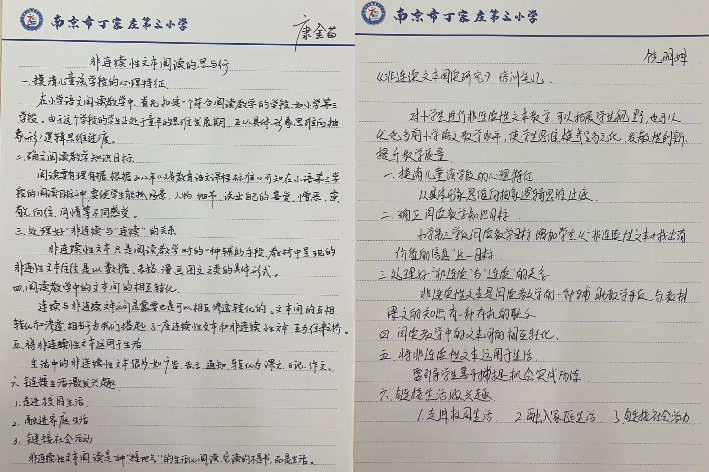 南京市丁家庄第二小学
康金苗
非连续性文本阅读的思与行
一.摸清儿童该学段的心理特征
在小学语文阅读教学中,首先知是一个符合阅读教学的学段,如小学第三
学段,由于这个学段的学生正处于童年的思维发展期,正从具体形象思维向抽
象形逻辑思维过度。
二.确立阅读教学知识目标
阅读要有理有据,根据2022年《义务教育语文课程标准》可知在小语第三学
段的阅读目标中,要使学生能抓场景、人物、细节,说出自己的喜爱、憎恶、崇
敬、向往、同情等不同感受。
三.处理好“非连续”与“连续”的关系
非连续性文本只是阅读教学时的一种辅助手段,教材中呈现的
非连续性文本往往是以数据、表格、漫画图文之类的具体形式。
四.阅读教学中的文本间的相互转化
连续与非连续文本之间是需要也是可以相互渗透转化的。文本间的互相
转化和渗透,相当于为我们搭起了一座连续性文本和非连续性文本互为往来桥。
五.将非连续性文本运用于生活
生活中的非连续性文本很多,如广告、告示、通知,转化为课文、日记、作文。
六.链接生活激发兴趣
1.走进校园生活
2.融进家庭生活
3.链接社会活动
非连续性文本阅读是一种“接地气”的生活化阅读,它读的不是书,而是生活。
南京市丁家庄第二小学
《非连续文本阅读研究》培训笔记
对小学生进行非连续性文本教学,可以拓展学生视野,也可以
优化当前小学语文教学水平,使学生思维模式多元化,发散性创新,
提升教学质量.
一.摸清儿童该学段的心理特征
从具体形象思维向抽象逻辑思维过渡.
二.确立阅读教学知识目标
小学第三学段阅读教学目标增加学生从“非连续性文本中找出有
价值的信息”这一目标.
三.处理好“非连续”与“连续”的关系
非连续性文本是阅读教学的一种辅助教学手段,与教材
课文的知识有一种有机的联系
四.阅读教学中的文本间的相互转化.
五.将非连续性文本运用于生活.
要引导学生善于捕捉机会实践训练
六.链接生活激发兴趣
1.走进校园生活 2.融入家庭生活 3.链接社会活动